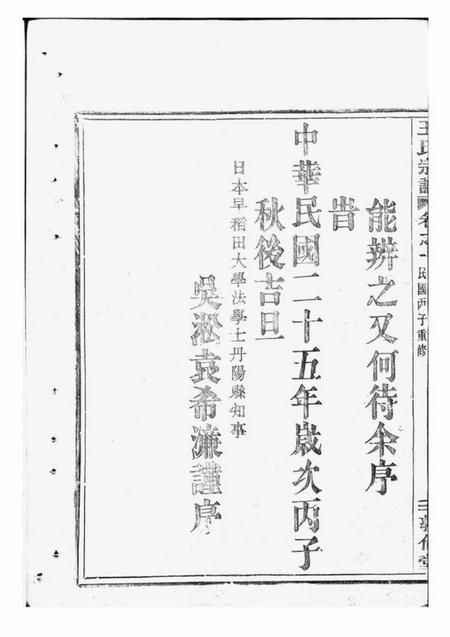 王氏宗譜 卷之一 民國丙子重修
三 敦倫堂
能辨之又何待余序
旹
中華民國二十五年歲次丙子
秋後吉旦
日本早稻田大學法學士丹陽縣知事
吳淞袁希濂謹序